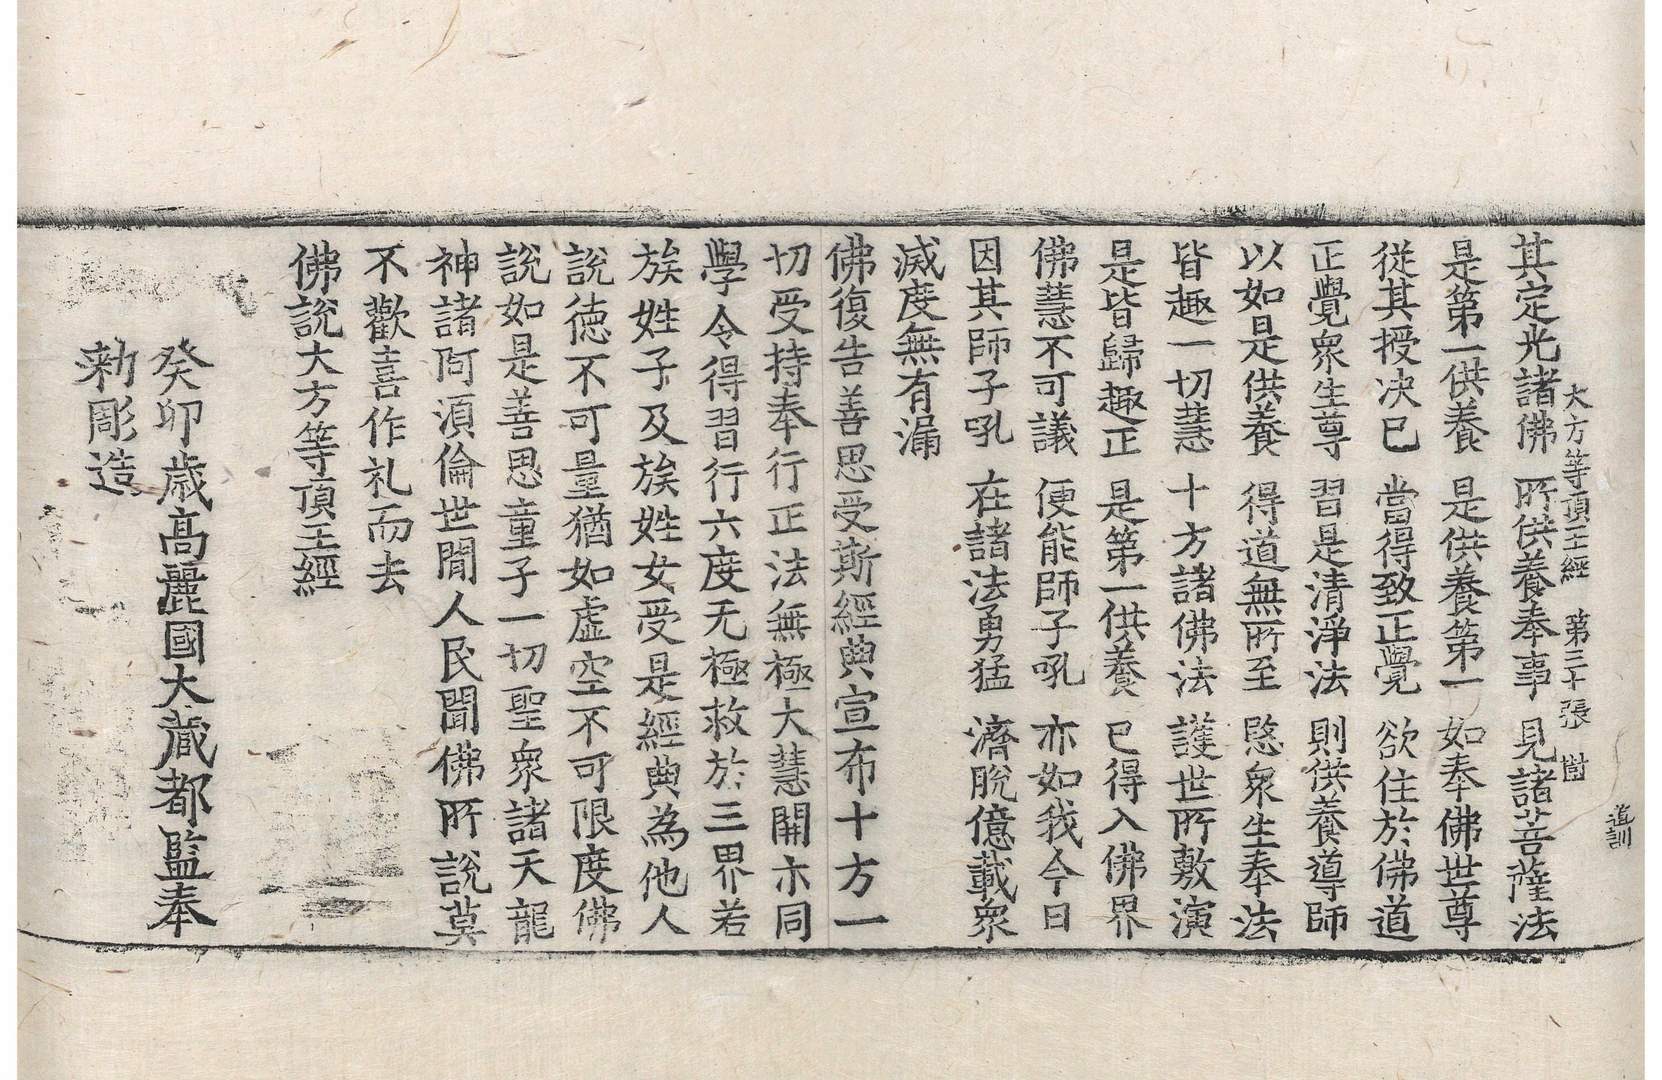 道訓
大方等頂王經　第三十張　㘅
其定光諸佛　所供養奉事　見諸菩薩法
是第一供養　是供養第一　如奉佛世尊
從其授決已　當得致正覺　欲住於佛道
正覺衆生尊　習是清淨法　則供養導師
以如是供養　得道無所至　愍衆生奉法
皆趣一切慧　十方諸佛法　護世所敷演
是皆歸趣正　是第一供養　已得入佛界
佛慧不可議　便能師子吼　亦如我今日
因其師子吼　在諸法勇猛　濟脫億載衆
滅度無有漏
佛復告善思受斯經典宣布十方一
切受持奉行正法無極大慧開示同
學令得習行六度无極救於三界若
族姓子及族姓女受是經典為他人
說德不可量猶如虛空不可限度佛
說如是善思童子一切聖衆諸天龍
神諸阿須倫世閒人民聞佛所說莫
不歡喜作礼而去
佛說大方等頂王經
癸卯歲高麗國大藏都監奉
勑彫造